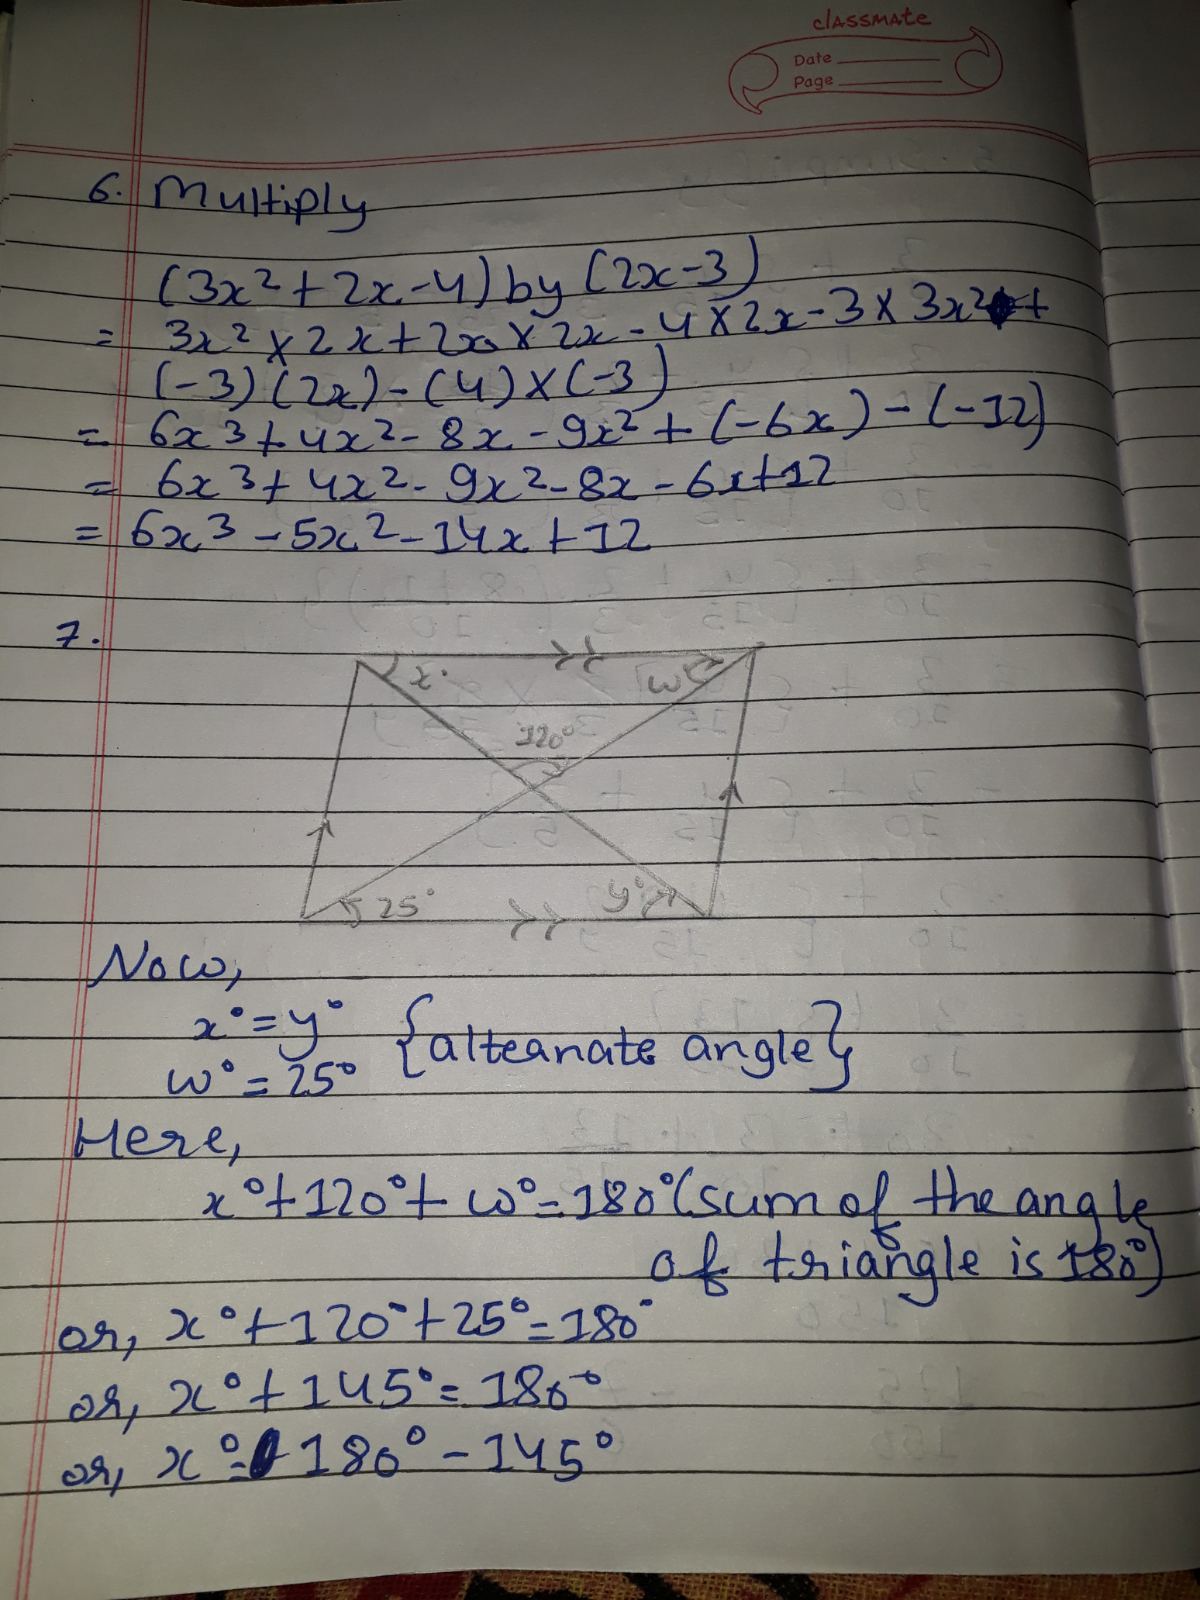 classmate
Date
Page
6. Multiply
(3x²+2x-4) by (2x-3)
= 3x²×2x+2x×2x-4×2x-3×3x²+
(-3)(2x)-(4)×(-3)
= 6x³+4x²-8x-9x²+(-6x)-(-12)
= 6x³+4x²-9x²-8x-6x+12
= 6x³-5x²-14x+12
7.
x° w
120°
25° y°
Now,
x°=y°
w°=25° {alteanate angle}
Here,
x°+120°+w°=180°(sum of the angle
of triangle is 180°)
or, x°+120°+25°=180°
or, x°+145°=180°
or, x°=180°-145°